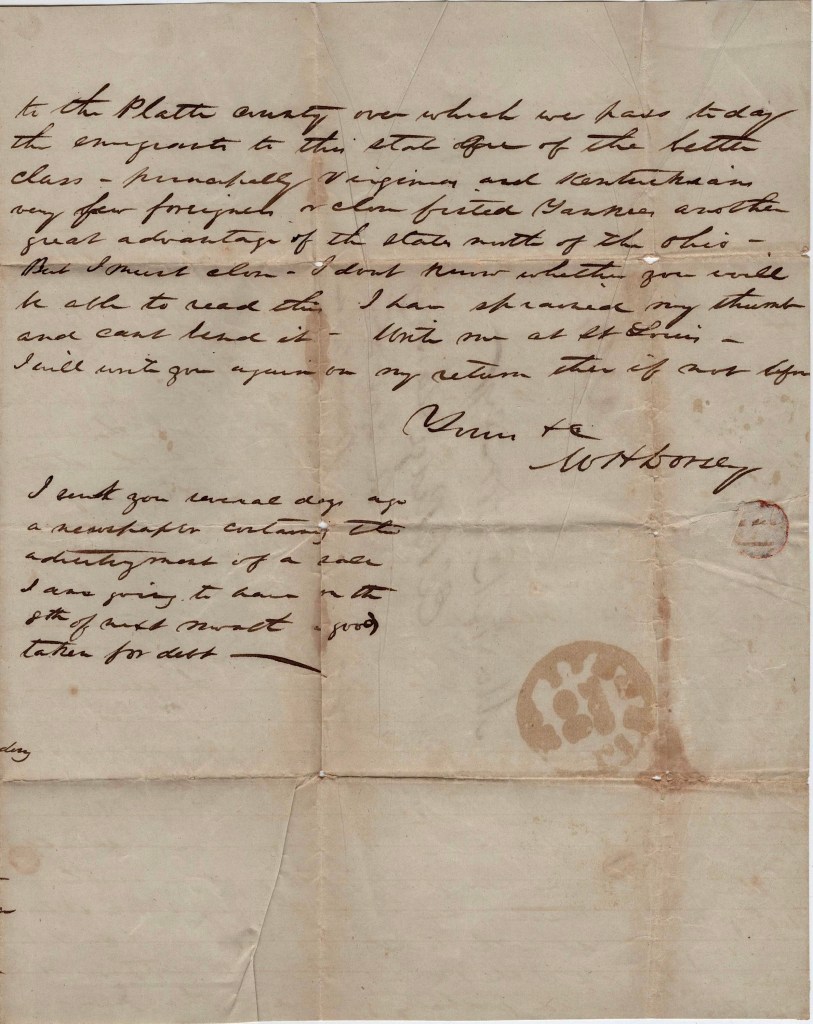 to the Platte country over which we pass today
the emigrants to this state are of the better
class - principally Virginians and Kentuckians
very few foreigners or close fisted Yankees another
great advantage of the states north of the Ohio -
But I must close - I dont know whether you will
be able to read this I have sprained my thumb
and cant bend it - Write me at St Louis -
I will write you again on my return ther if not before
Yours &c
W H Dorsey
I sent you several days ago
a newspaper containing the
advertisment of a sale
I am going to have on the
8th of next month - goods
taken for debt -